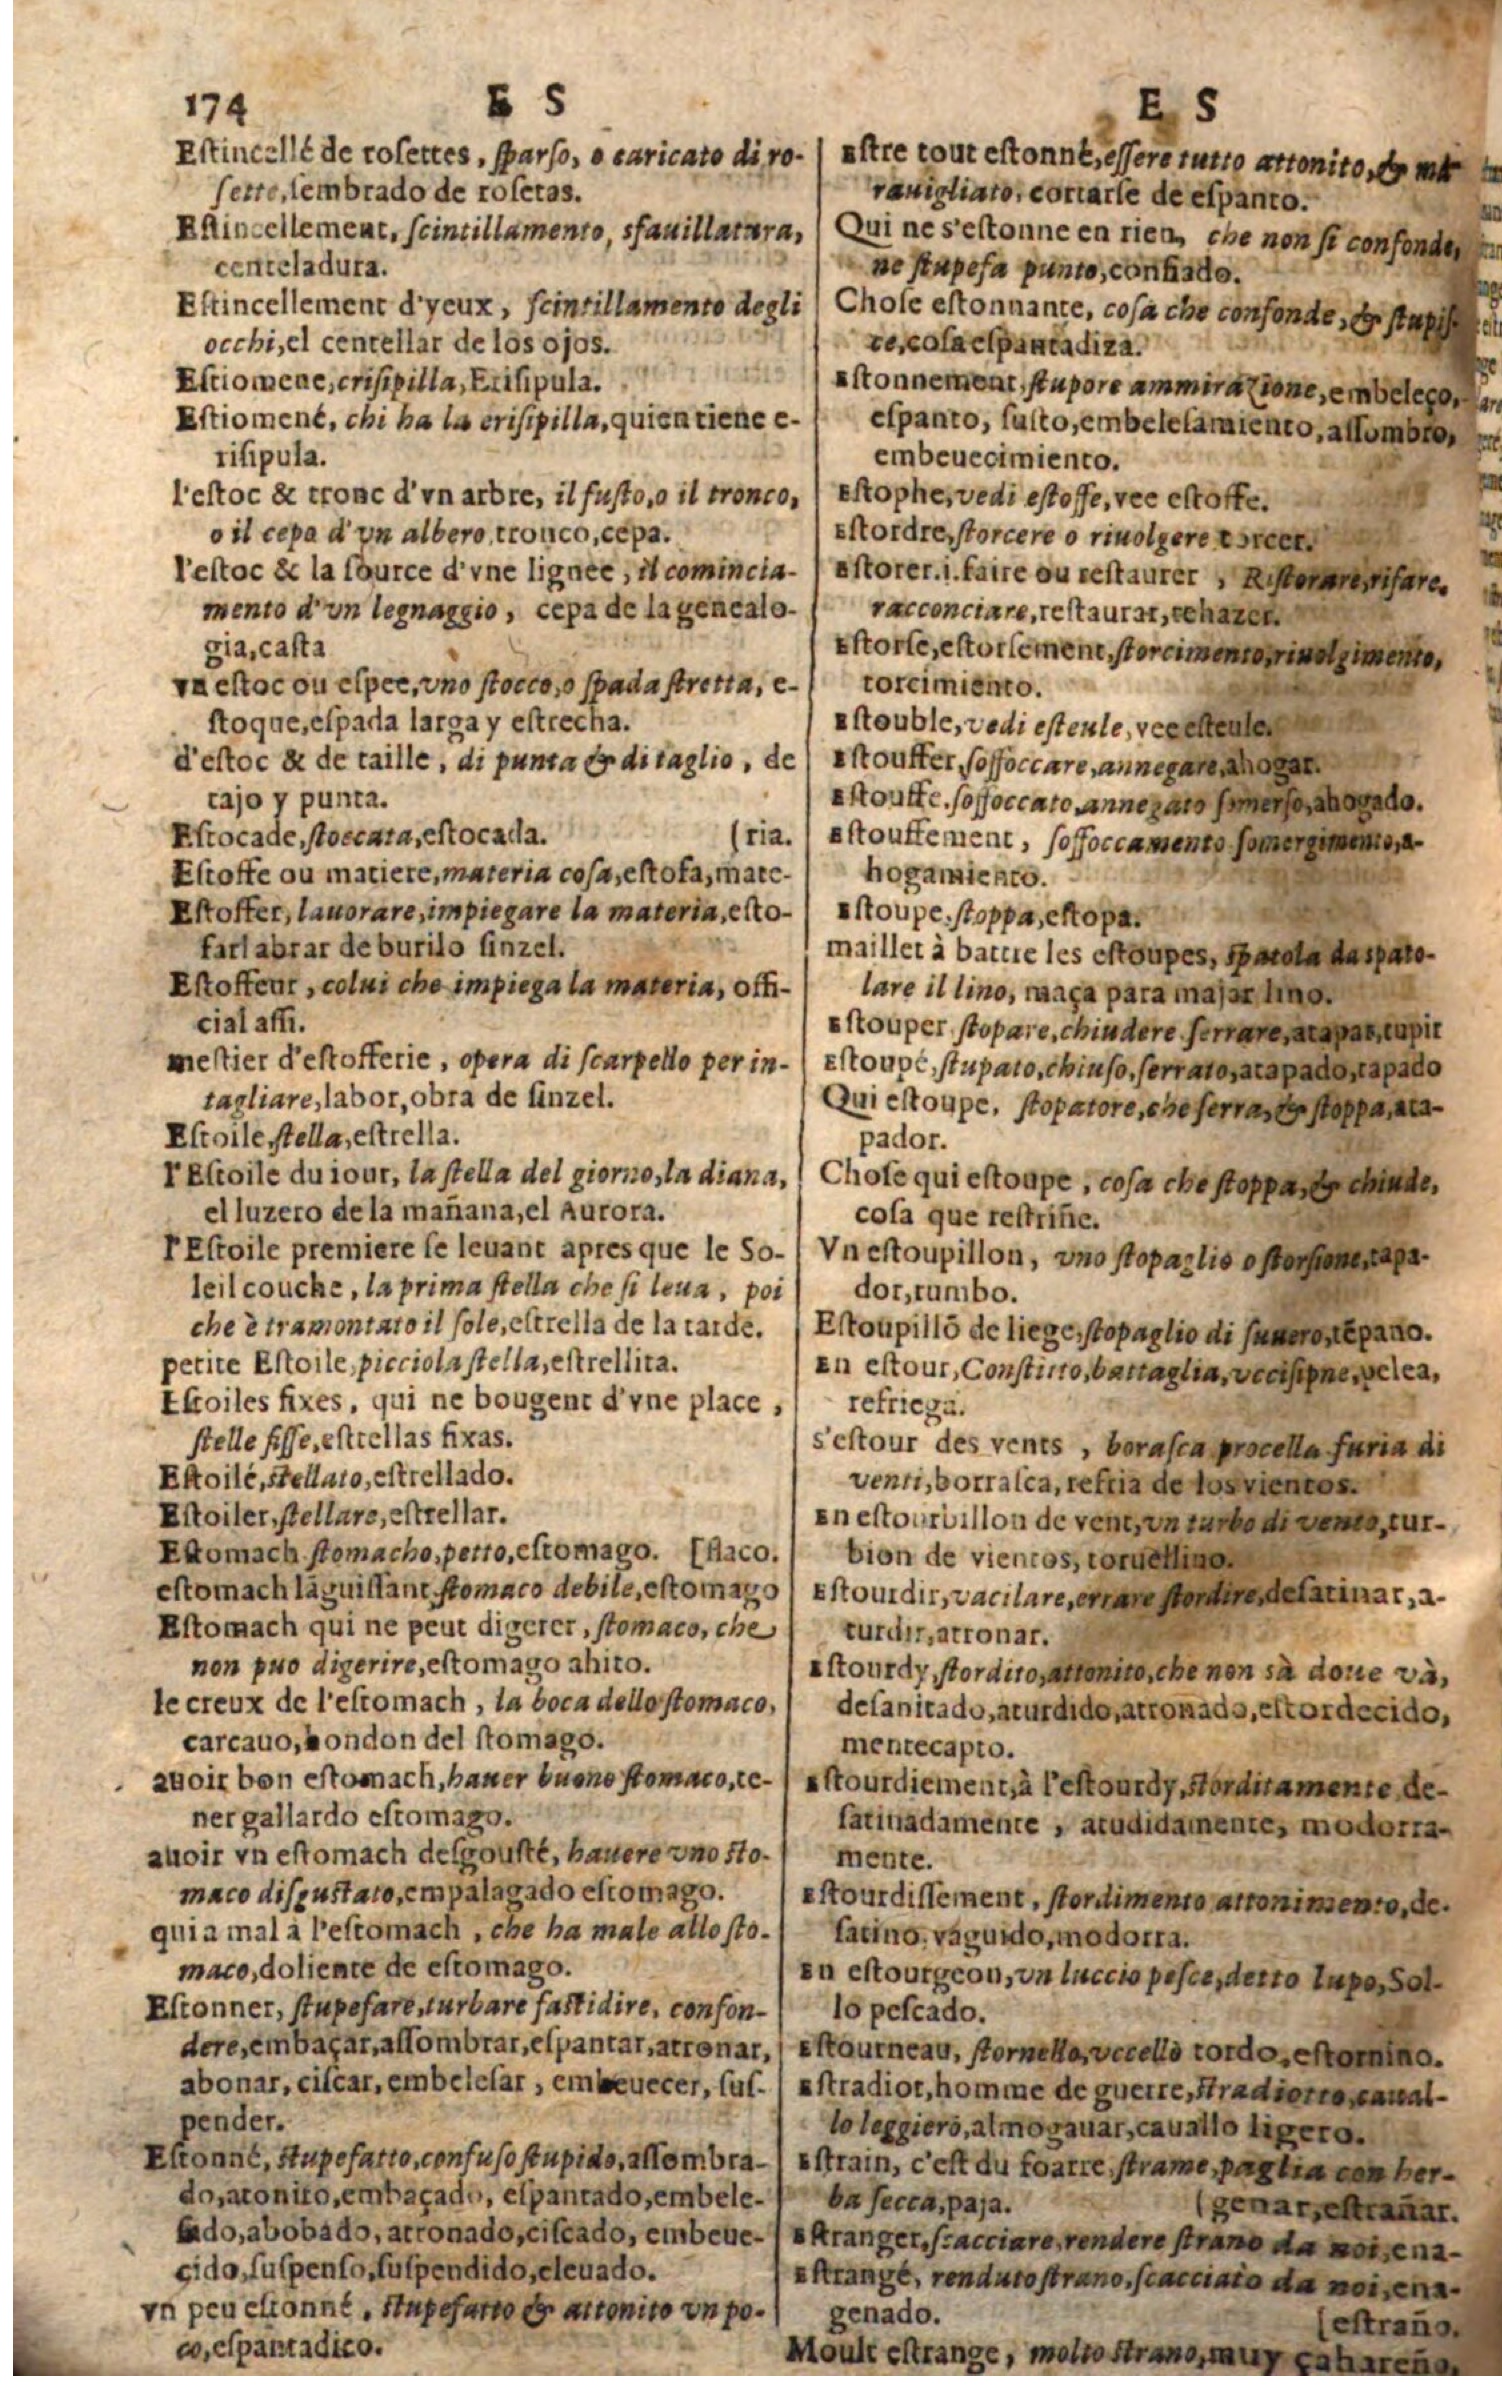 174 E S
Eſtincellé de roſettes, ſparſo, o caricato di ro-
ſette, ſembrado de roſetas.
Eſtincellement, ſcintillamento, sfauillatura,
centeladura.
Eſtincellement d'yeux, ſcintillamento degli
occhi, el centellar de los ojos.
Eſtiomene, criſipilla, Eriſipula.
Eſtiomené, chi ha la eriſipilla, quien tiene e-
riſipula.
l'eſtoc & tronc d'vn arbre, il fuſto, o il tronco,
o il cepa d'vn albero, tronco, cepa.
l'eſtoc & la ſource d'vne lignee, il comincia-
mento d'vn legnaggio, cepa de la genealo-
gia, caſta
vn eſtoc ou eſpee, vno ſtocco, o ſpada ſtretta, e-
ſtoque, eſpada larga y eſtrecha.
d'eſtoc & de taille, di punta & di taglio, de
tajo y punta.
Eſtocade, ſtoccata, eſtocada. (ria.
Eſtoffe ou matiere, materia coſa, eſtofa, mate-
Eſtoffer, lauorare, impiegare la materia, eſto-
farl abrar de burilo ſinzel.
Eſtoffeur, colui che impiega la materia, offi-
cial aſſi.
meſtier d'eſtofferie, opera di ſcarpello per in-
tagliare, labor, obra de ſinzel.
Eſtoile, ſtella, eſtrella.
l'Eſtoile du iour, la ſtella del giorno, la diana,
el luzero de la mañana, el Aurora.
l'Eſtoile premiere ſe leuant apres que le So-
leil couche, la prima ſtella che ſi leua, poi
che è tramontato il ſole, eſtrella de la tarde.
petite Eſtoile, picciola ſtella, eſtrellita.
Eſtoiles fixes, qui ne bougent d'vne place,
ſtelle fiſſe, eſtrellas fixas.
Eſtoilé, ſtellato, eſtrellado.
Eſtoiler, ſtellare, eſtrellar.
Eſtomach ſtomacho, petto, eſtomago. [ſtaco.
eſtomach lãguiſſant, ſtomaco debile, eſtomago
Eſtomach qui ne peut digerer, ſtomaco, che
non puo digerire, eſtomago ahito.
le creux de l'eſtomach, la boca dello ſtomaco,
carcauo, hondon del ſtomago.
auoir bon eſtomach, hauer buono ſtomaco, te-
ner gallardo eſtomago.
auoir vn eſtomach deſgouſté, hauere vno ſto-
maco diſguſtato, empalagado eſtomago.
qui a mal à l'eſtomach, che ha male allo ſto-
maco, doliente de eſtomago.
Eſtonner, ſtupefare, turbare faſtidire, confon-
dere, embaçar, aſſombrar, eſpantar, atronar,
abonar, ciſcar, embeleſar, embeuecer, ſuſ-
pender.
Eſtonné, ſtupefatto, confuſo ſtupido, aſſombra-
do, atonito, embaçado, eſpantado, embele-
ſado, abobado, atronado, ciſcado, embeue-
cido, ſuſpenſo, ſuſpendido, eleuado.
vn peu eſtonné, ſtupefatto & attonito vn po-
co, eſpantadico.
E S
Eſtre tout eſtonné, eſſere tutto attonito, & ma
rauigliato, cortarſe de eſpanto.
Qui ne s'eſtonne en rien, che non ſi confonde,
ne ſtupefa punto, confiado.
Choſe eſtonnante, coſa che confonde, & ſtupiſ-
ce, coſa eſpantadiza.
Eſtonnement, ſtupore ammirazione, embeleço,
eſpanto, ſuſto, embeleſamiento, aſſombro,
embeuecimiento.
Eſtophe, vedi eſtoffe, vee eſtoffe.
Eſtordre, ſtorcere o riuolgere torcer.
Eſtorer. i. faire ou reſtaurer, Riſtorare, rifare,
racconciare, reſtaurar, rehazer.
Eſtorſe, eſtorſement, ſtorcimento, riuolgimento,
torcimiento.
Eſtouble, vedi eſteule, vee eſteule.
Eſtouffer, ſoffoccare, annegare, ahogar.
Eſtouffe, ſoffoccato, annegato ſomerſo, ahogado.
Eſtouffement, ſoffoccamento ſomergimento, a-
hogamiento.
Eſtoupe, ſtoppa, eſtopa.
maillet à battre les eſtoupes, ſpatola da ſpato-
lare il lino, maça para majar lino.
Eſtouper ſtopare, chiudere ſerrare, atapar, tupir
Eſtoupé, ſtupato, chiuſo, ſerrato, atapado, tapado
Qui eſtoupe, ſtopatore, che ſerra, & ſtoppa, ata-
pador.
Choſe qui eſtoupe, coſa che ſtoppa, & chiude,
coſa que reſtriñe.
Vn eſtoupillon, vno ſtopaglio o ſtorſione, tapa-
dor, tumbo.
Eſtoupillõ de liege, ſtopaglio di ſuuero, tẽpano.
En eſtour, Conſtitto, battaglia, vcciſipne, pelea,
refriega.
s'eſtour des vents, boraſca procella furia di
venti, borraſca, refria de los vientos.
En eſtourbillon de vent, vn turbo di vento, tur-
bion de vientos, toruellino.
Eſtourdir, vacilare, errare ſtordire, deſatinar, a-
turdir, atronar.
Eſtourdy, ſtordito, attonito, che non sà doue và,
deſanitado, aturdido, atronado, eſtordecido,
mentecapto.
Eſtourdiement, à l'eſtourdy, ſtorditamente de-
ſatinadamente, atudidamente, modorra-
mente.
Eſtourdiſſement, ſtordimento attonimento, de-
ſatino, vaguido, modorra.
En eſtourgeon, vn luccio peſce, detto lupo, Sol-
lo peſcado.
Eſtourneau, ſtornello, vccello tordo, eſtornino.
Eſtradiot, homme de guerre, ſtradiotto, caual-
lo leggiero, almogauar, cauallo ligero.
Eſtrain, c'eſt du foarre, ſtrame, paglia con her-
ba ſecca, paja. (genar, eſtrañar.
Eſtranger, ſcacciare, rendere ſtrano da noi, ena-
Eſtrangé, renduto ſtrano, ſcacciato da noi, ena-
genado. [eſtraño.
Moult eſtrange, molto ſtrano, muy çahareño,